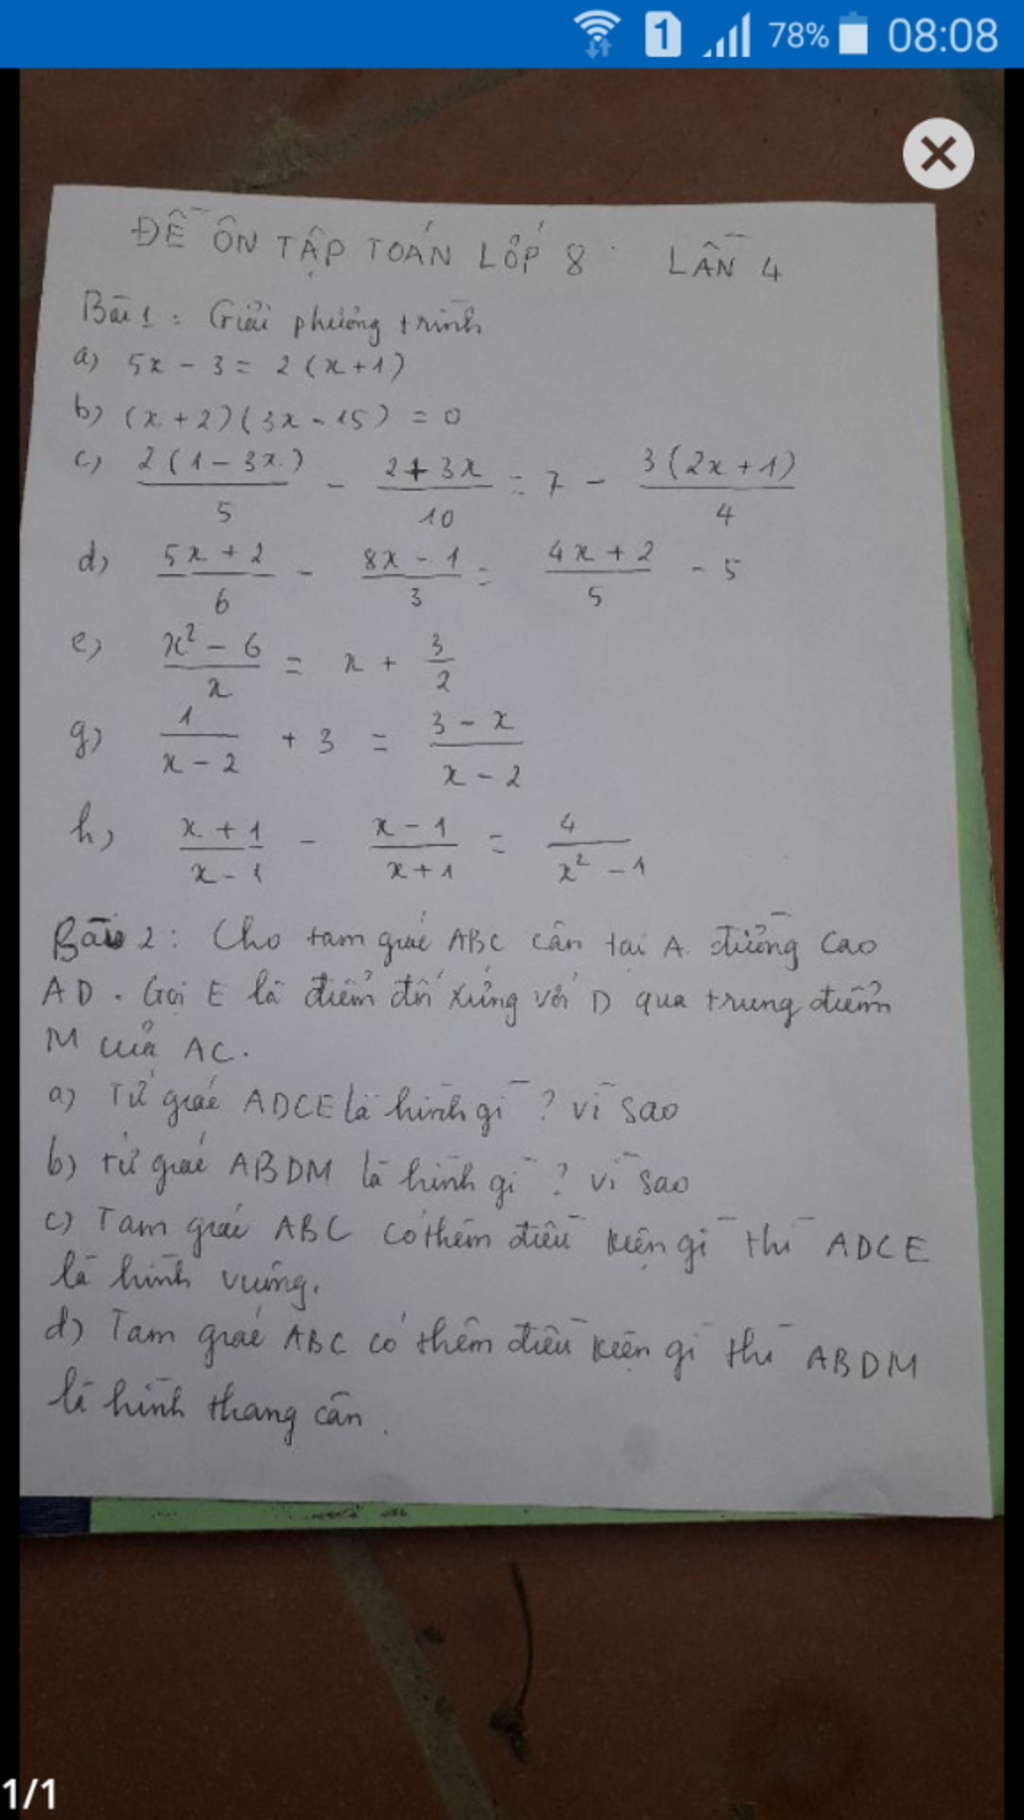 1 78% 08:08
ĐỀ ÔN TẬP TOÁN LỚP 8 LẦN 4
Bài 1 : Giải phương trình
a) 5x - 3 = 2 (x+1)
b) (x + 2)(3x - 15) = 0
c) 2(1-3x)/5 - 2+3x/10 = 7 - 3(2x+1)/4
d) 5x+2/6 - 8x-1/3 = 4x+2/5 - 5
e) x² - 6/x = x + 3/2
g) 1/x-2 + 3 = 3-x/x-2
h) x+1/x-1 - x-1/x+1 = 4/x²-1
Bài 2 : Cho tam giác ABC cân tại A. đường cao
AD. Gọi E là điểm đối xứng với D qua trung điểm
M của AC.
a) Tứ giác ADCE là hình gì ? vì sao
b) Tứ giác ABDM là hình gì ? vì sao
c) Tam giác ABC có thêm điều kiện gì thì ADCE
là hình vuông.
d) Tam giác ABC có thêm điều kiện gì thì ABDM
là hình thang cân.
1/1